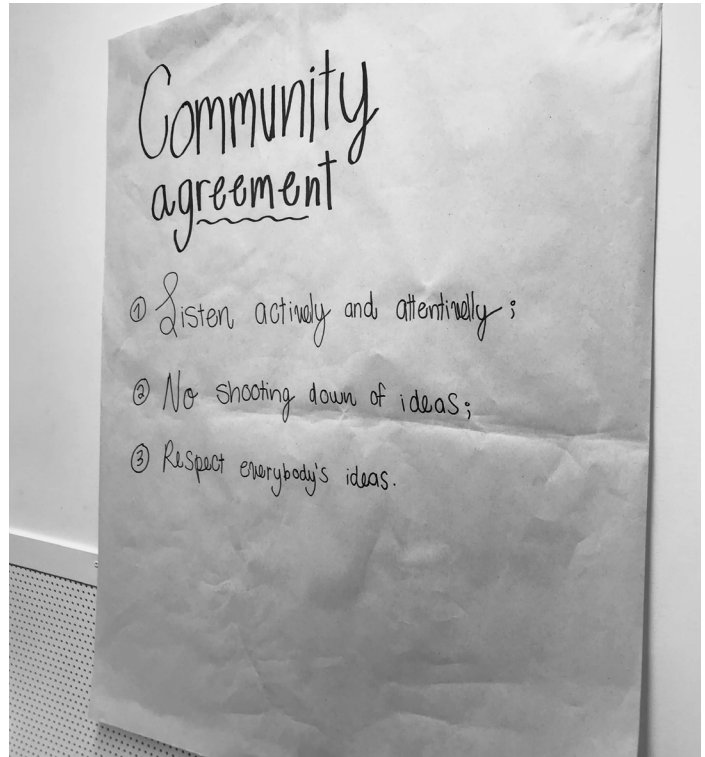 Community
agreement
① Listen actively and attentively;
② No shooting down of ideas;
③ Respect everybody's ideas.